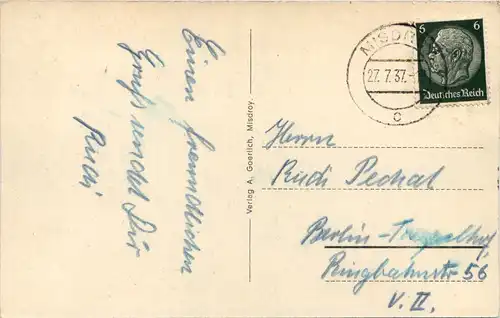 Einen freundlichen
Gruß sendet Dir
Rudi
Verlag A. Goerlich, Misdroy.
MISDR
27.7.37.
c
6 6
Deutsches Reich
Herrn
Rudi Pechat
Berlin-Tempelhof,
Ringbahnstr 56
V. II.